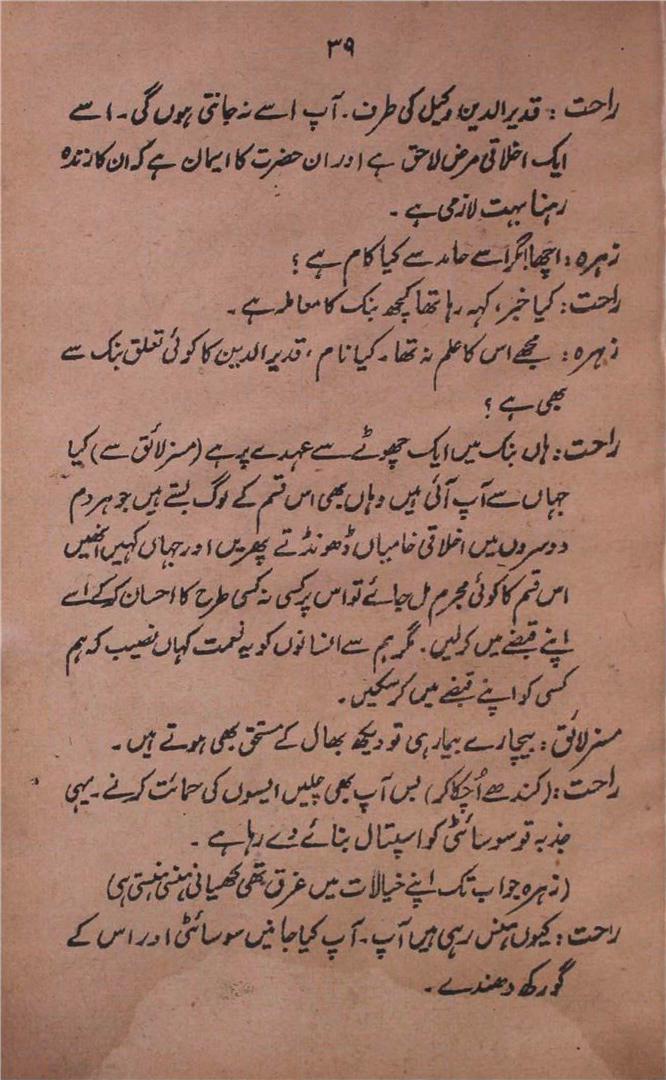 ۳۹
راحت : قدیرالدین وکیل کی طرف۔ آپ اسے نہ جانتی ہوں گی۔ اسے
ایک اخلاقی مرض لاحق ہے اور ان حضرت کا ایمان ہے کہ ان کا زندہ
رہنا بہت لازمی ہے۔
زہرہ : اچھا اگر اسے حامد سے کیا کام ہے؟
راحت : کیا خبر، کہہ رہا تھا کچھ بنک کا معاملہ ہے۔
زہرہ : مجھے اس کا علم نہ تھا۔ کیا نام، قدیرالدین کا کوئی تعلق بنک سے
بھی ہے؟
راحت : ہاں بنک میں ایک چھوٹے سے عہدے پر ہے (مسز لائق سے) کیا
جہاں سے آپ آئی ہیں وہاں بھی اس قسم کے لوگ بستے ہیں جو ہر دم
دوسروں میں اخلاقی خامیاں ڈھونڈتے پھریں اور جہاں کہیں انھیں
اس قسم کا کوئی مجرم مل جائے تو اس پر کسی نہ کسی طرح کا احسان کر کے اسے
اپنے قبضے میں کرلیں۔ مگر ہم سے انسانوں کو یہ نعمت کہاں نصیب کہ ہم
کسی کو اپنے قبضے میں کرسکیں۔
مسز لائق : بیچارے بیمار ہی تو دیکھ بھال کے مستحق بھی ہوتے ہیں۔
راحت : (کندھے اُچکا کر) بس آپ بھی چلیں ایسوں کی حمائت کرنے۔ یہی
جذبہ تو سوسائٹی کو اسپتال بنائے دے رہا ہے۔
(زہرہ جو اب تک اپنے خیالات میں غرق تھی کھسیانی ہنسی ہنستی ہے)
راحت : کیوں ہنس رہی ہیں آپ۔ آپ کیا جانیں سوسائٹی اور اس کے
گورکھ دھندے۔